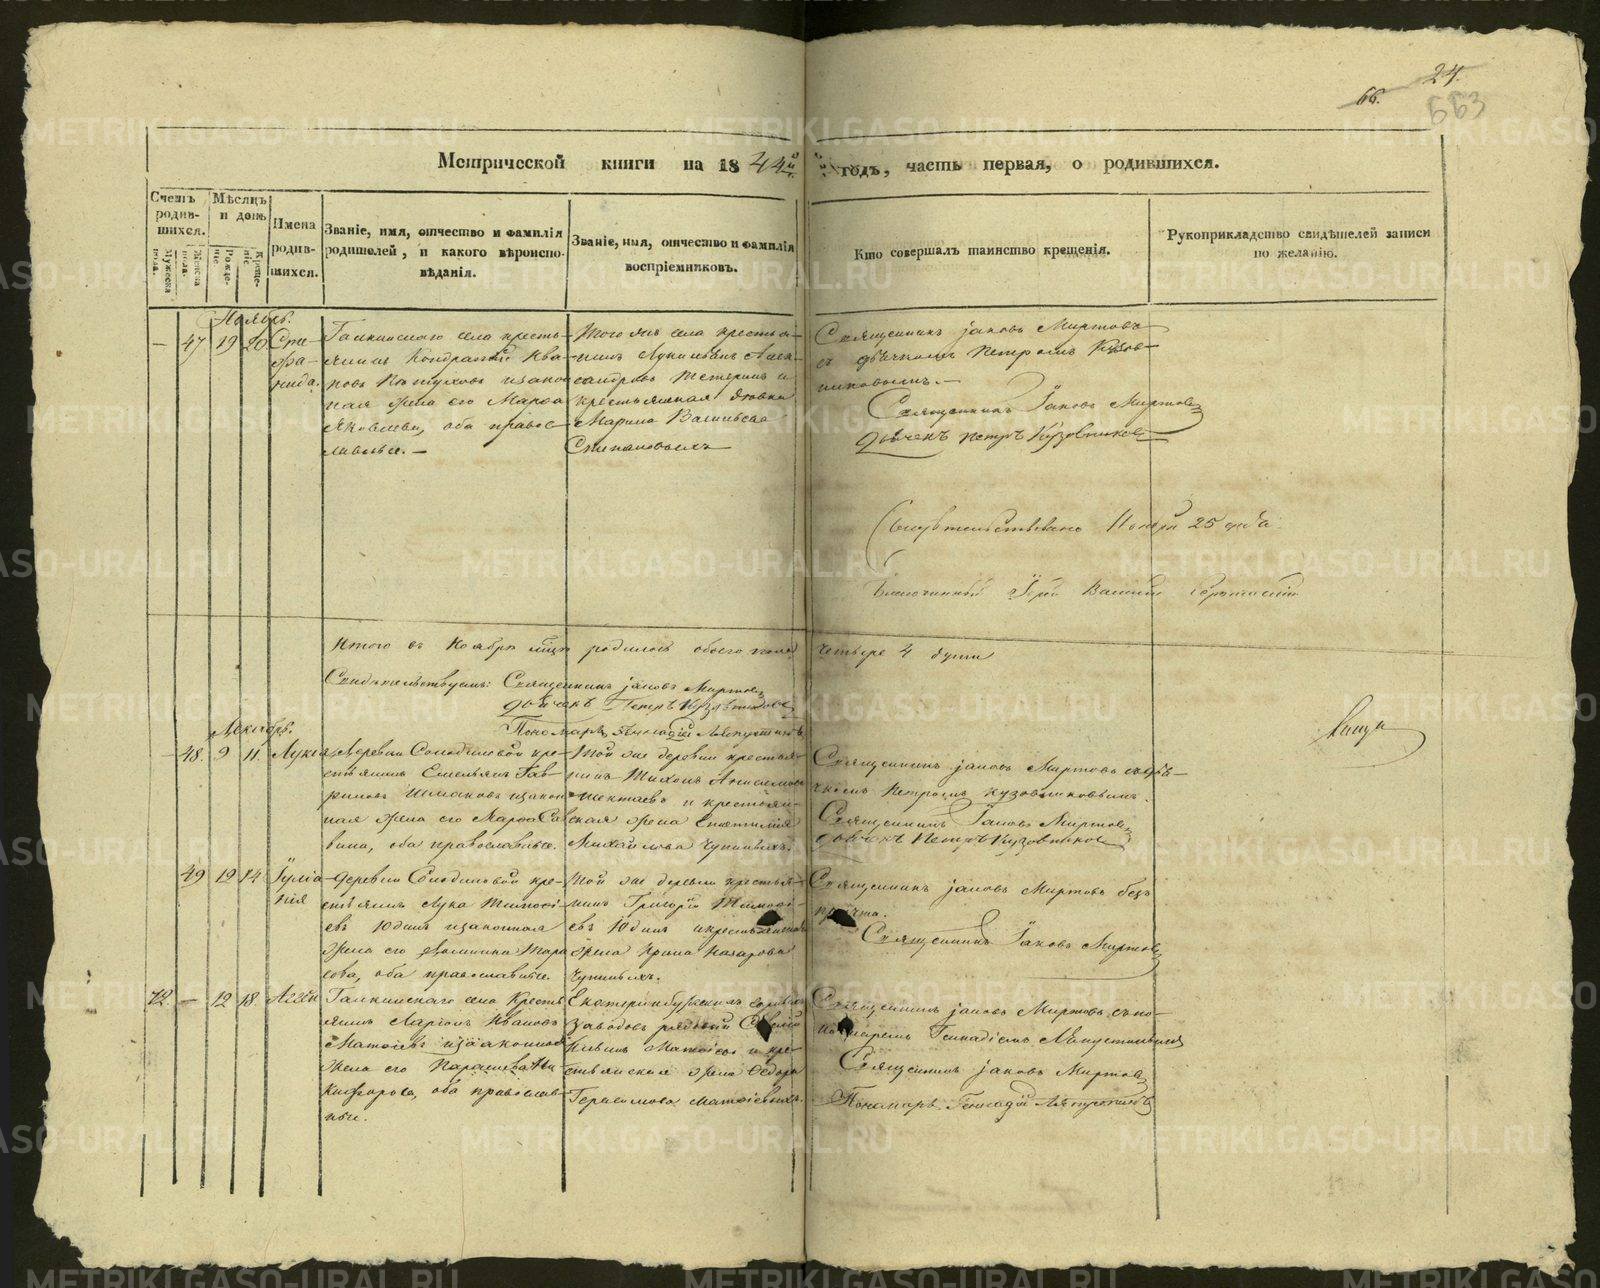 24.
66.
663
Метрической книги на 1844й годъ, часть первая, о родившихся.
Счетъ родив-шихся.
Мужеска пола.
Женска пола.
Мѣсяцъ и день
Рожде-ніе
Креще-ніе
Имена родив-шихся.
Званіе, имя, отчество и фамилія
родителей, и какого вѣроиспо-
вѣданія.
Званіе, имя, отчество и фамилія
воспріемниковъ.
Кто совершалъ таинство крещенія.
Рукоприкладство свидѣтелей записи
по желанію.
Ноябрь.
— 47 19 20
Сте-
фа-
нида.
Галкинскаго села кресть-
янинъ Кондратій Ива-
новъ Пѣтуховъ и закон-
ная жена его Марѳа
Яковлева, оба правос-
лавные. —
Того же села крестья-
нинъ Лукиянъ Алек-
сандровъ Тетеринъ и
крестьянская дѣвка
Марина Васильева
Степановыхъ
Священникъ Іаковъ Миртовъ
съ дьячкомъ Петромъ Кузов-
никовымъ. —
Священникъ Іаковъ Миртовъ
дьячекъ Петръ Кузовниковъ
Свидѣтельствовано Ноября 25 дня
Благочинный Іерей Василий
Итого въ Ноябрѣ мѣсяцѣ родилось обоего пола четыре 4 души
Свидѣтельствуемъ: Священникъ Іаковъ Миртовъ
дьячекъ Петръ Кузовниковъ
Пономарь Геннадій Ляпустинъ
Декабрь.
— 48. 9 11. Лукія
Деревни Солодиловой кре-
стьянинъ Емельянъ Гав-
риловъ Шмаковъ и закон-
ная жена его Марѳа Сав-
вина, оба православные.
Той же деревни крестья-
нинъ Тихонъ
и крестьян-
ская жена
Михайлова Чупиныхъ.
Священникъ Іаковъ Миртовъ съ дья-
чкомъ Петромъ Кузовниковымъ.
Священникъ Іаковъ Миртовъ
дьячекъ Петръ Кузовниковъ
49 12 14.
Іуліа-
нія
Деревни Солодиловой кре-
стьянинъ Лука Тимоѳе-
евъ Юдинъ и законная
жена его Домника Тара-
сова, оба православные.
Той же деревни крестья-
нинъ Григорій Тимоѳе-
евъ Юдинъ и крестьянская
жена Ирина Назарова
Чупиныхъ.
Священникъ Іаковъ Миртовъ безъ
причта.
Священникъ Іаковъ Миртовъ
42. — 12 18. Аггей
Галкинскаго села кресть-
янинъ Ларіонъ Ивановъ
Матвіевъ и законная
жена его Параскева
Никифорова, оба православ-
ные.
Екатеринбургскихъ
заводовъ рядовый
Матвіевъ и кре-
стьянская жена Ѳедора
Герасимова Матвіевыхъ.
Священникъ Іаковъ Миртовъ съ по-
номаремъ Геннадіемъ Ляпустинымъ
Священникъ Іаковъ Миртовъ
Пономарь Геннадій Ляпустинъ
METRIKI.GASO-URAL.RU